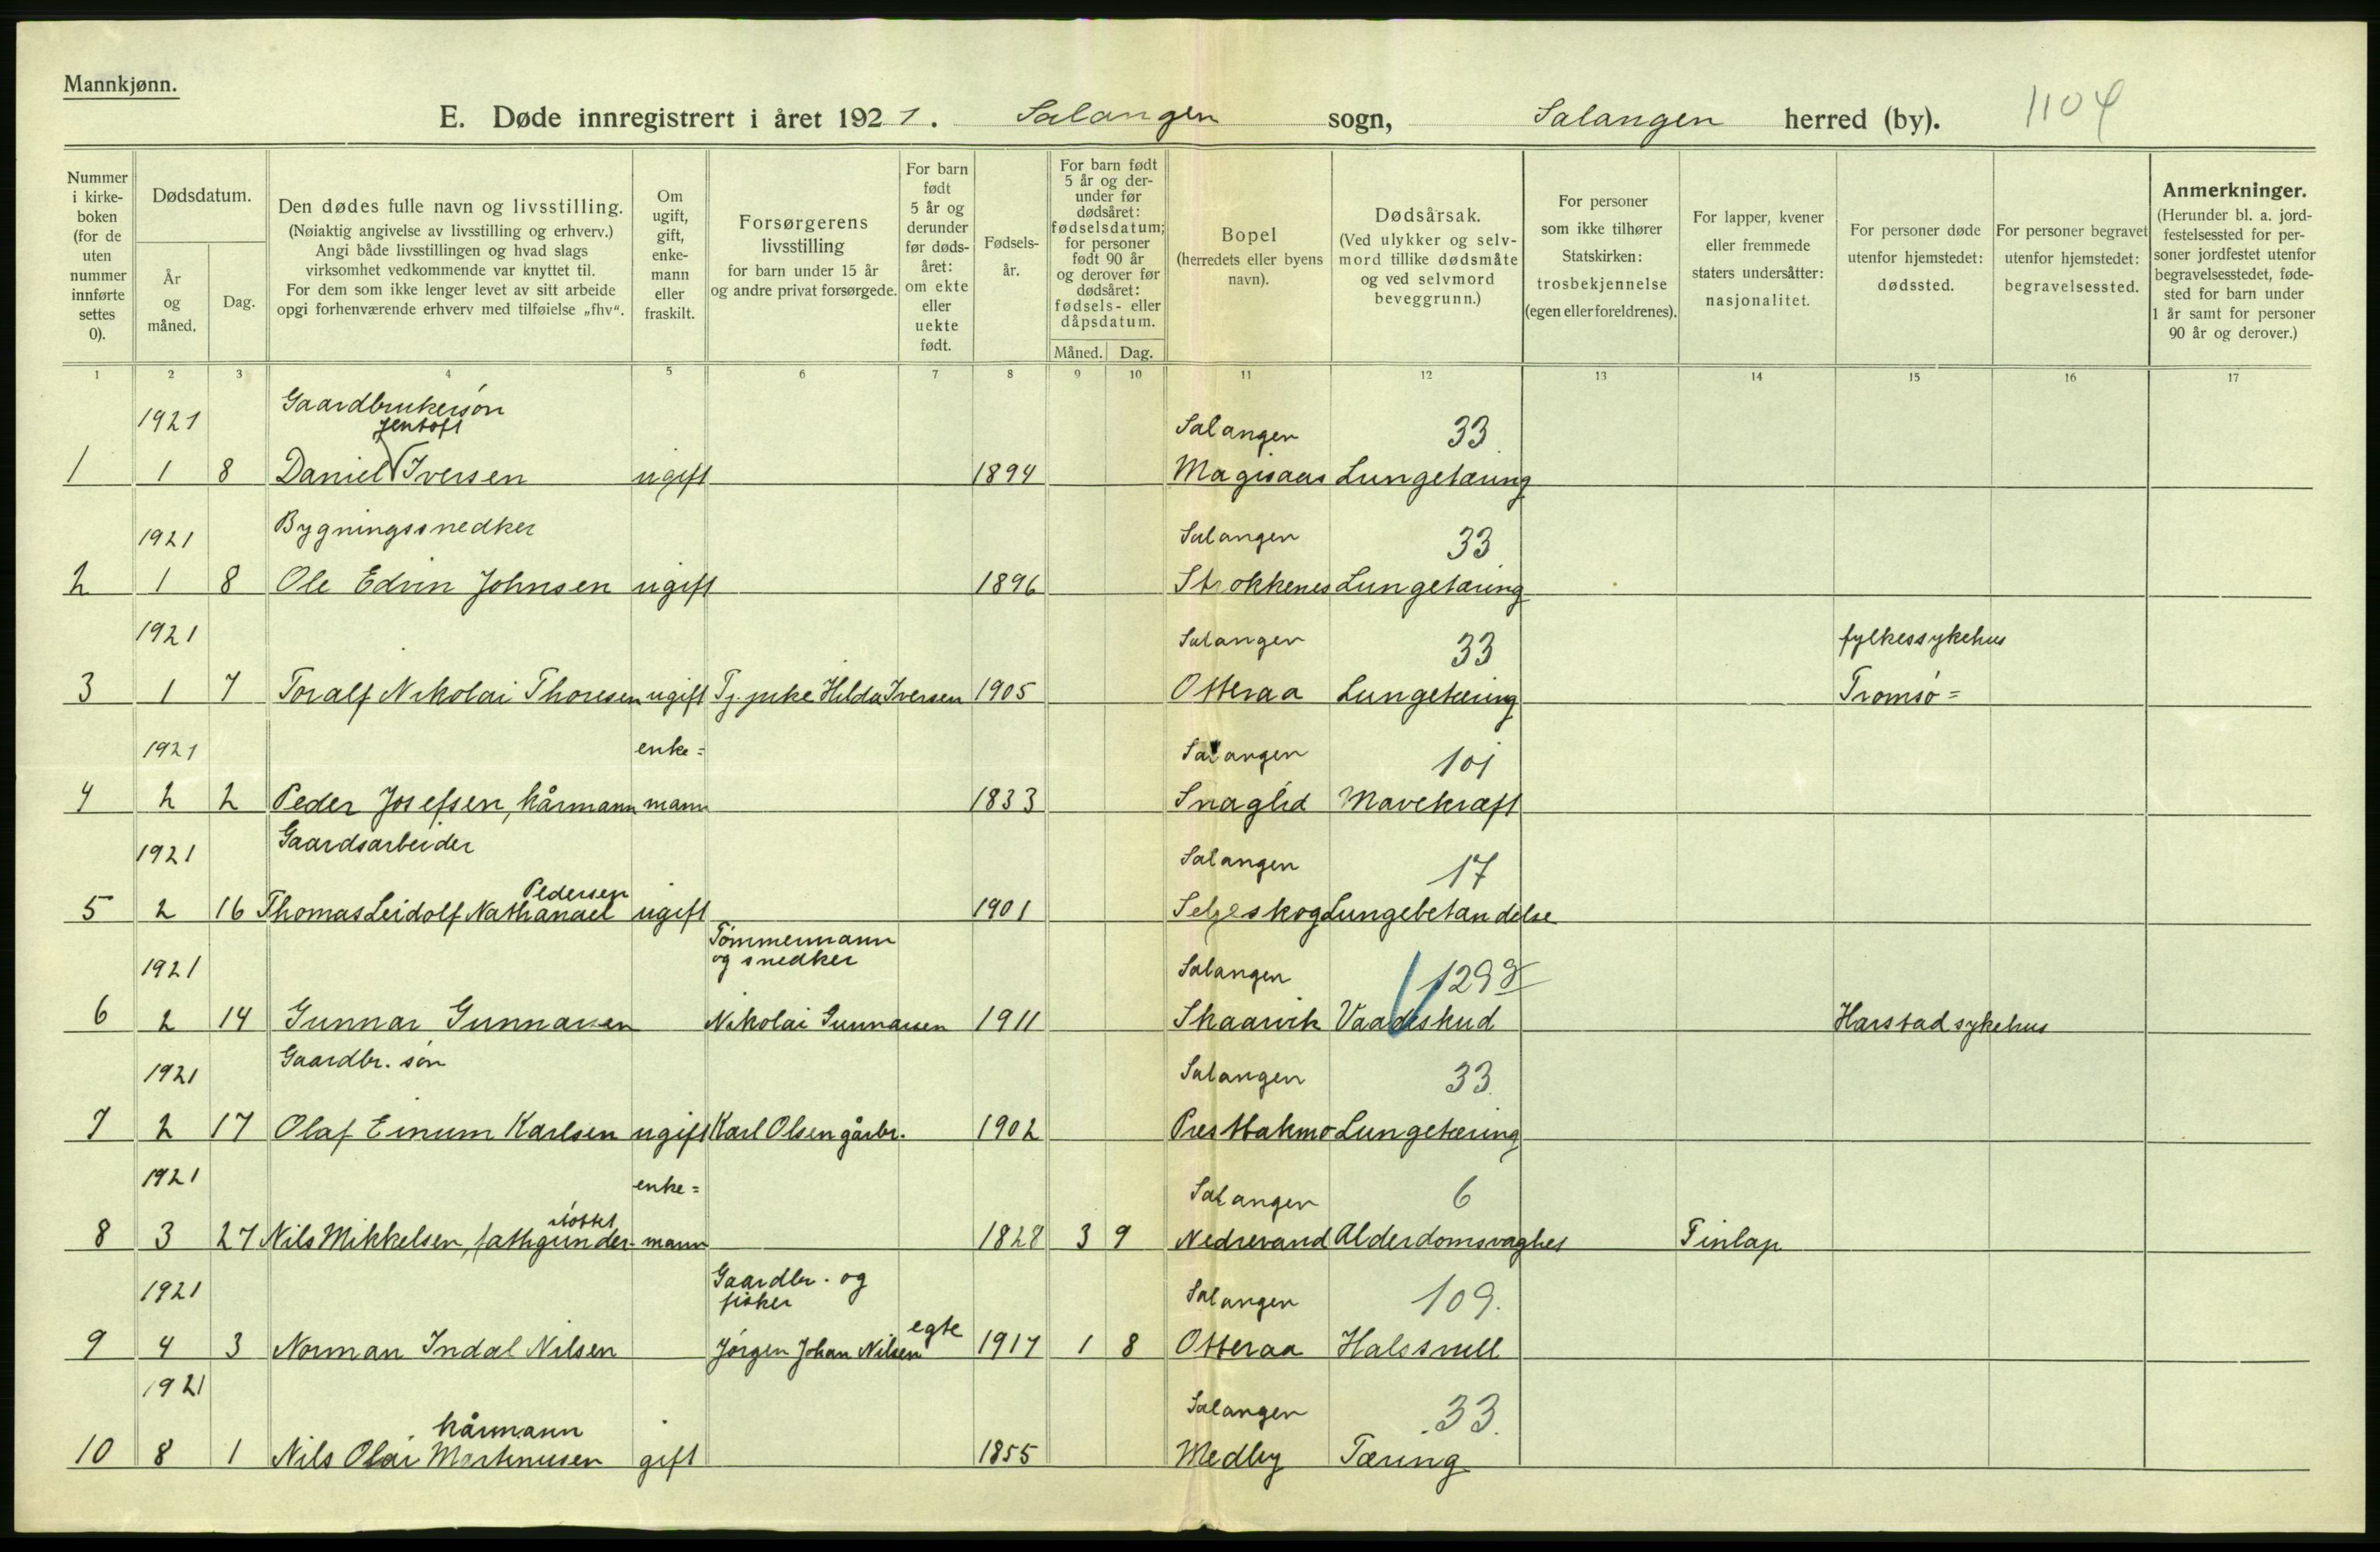 Mannkjønn.
E. Døde innregistrert i året 1921. Salangen sogn, Salangen herred (by). 1104
Nummer i kirke-boken (for de uten nummer innførte settes 0).
Dødsdatum.
År og måned.
Dag.
Den dødes fulle navn og livsstilling.
(Nøiaktig angivelse av livsstilling og erhverv.)
Angi både livsstillingen og hvad slags
virksomhet vedkommende var knyttet til.
For dem som ikke lenger levet av sitt arbeide
opgi forhenværende erhverv med tilføielse „fhv“.
Om ugift, gift, enke-mann eller fraskilt.
Forsørgerens livsstilling
for barn under 15 år
og andre privat forsørgede.
For barn født 5 år og derunder før døds-året: om ekte eller uekte født.
Fødsels-år.
For barn født 5 år og der-under før dødsåret: fødselsdatum; for personer født 90 år og derover før dødsåret: fødsels- eller dåpsdatum.
Måned. Dag.
Bopel
(herredets eller byens navn).
Dødsårsak.
(Ved ulykker og selv-mord tillike dødsmåte og ved selvmord beveggrunn.)
For personer som ikke tilhører Statskirken: trosbekjennelse (egen eller foreldrenes).
For lapper, kvener eller fremmede staters undersåtter: nasjonalitet.
For personer døde utenfor hjemstedet: dødssted.
For personer begravet utenfor hjemstedet: begravelsessted.
Anmerkninger.
(Herunder bl. a. jord-festelsessted for per-soner jordfestet utenfor begravelsesstedet, føde-sted for barn under 1 år samt for personer 90 år og derover.)
1 2 3 4 5 6 7 8 9 10 11 12 13 14 15 16 17
1921 Gaardbrukersøn Salangen 33
Jentoft
1 1 8 Daniel Iversen ugift 1894 Lungetæring
1921 Bygningssnedker Salangen 33
2 1 8 Ole Edvin Johnsen ugift 1896 Strokkenes Lungetæring
1921 Salangen 33 fylkessykehus
3 1 7 Toralf Nikolai Thoresen ugift Tj. pike Hilda Iversen 1905 Otteraa Lungetæring Tromsø=
1921 enke= Salangen 101
4 2 2 Peder Josefsen, kårmann mann 1833 Snaglid Mavekræft
1921 Gaardsarbeider Salangen 17
Pedersen
5 2 16 Thomas Leidolf Nathanael ugift 1901 Seljeskog Lungebetændelse
Tømmermann
1921 og snedker Salangen 129
6 2 14 Gunnar Gunnarsen Nikolai Gunnarsen 1911 Skaarvik Vaadeskud Harstad sykehus
1921 Gaardbr. søn Salangen 33
7 2 17 Olaf Einum Karlsen ugift Karl Olsen gårbr. 1902 Prestbakmo Lungetæring
1921 enke= Salangen 6
støttet
8 3 27 Nils Mikkelsen, fattigunder- mann 1828 3 9 Nedrevand Alderdomsvaghet Finlap
Gaardbr. og
1921 fisker Salangen 109.
9 4 3 Norman Indal Nilsen Jørgen Johan Nilsen egte 1917 1 8 Otteraa Halssvull
1921 Salangen 33.
kårmann
10 8 1 Nils Olai Martinusen gift 1855 Medby Tæring